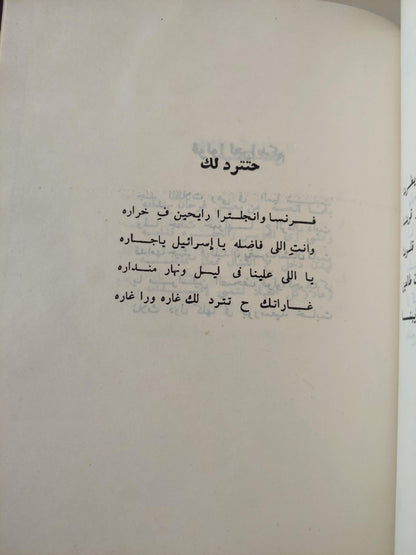 حتترد لك
فرنسا وانجلترا رايحين ف خراره
وانتِ اللى فاضله يا إسرائيل ياجاره
يا اللى علينا فى ليل ونهار منداره
غاراتك ح تترد لك غاره ورا غاره